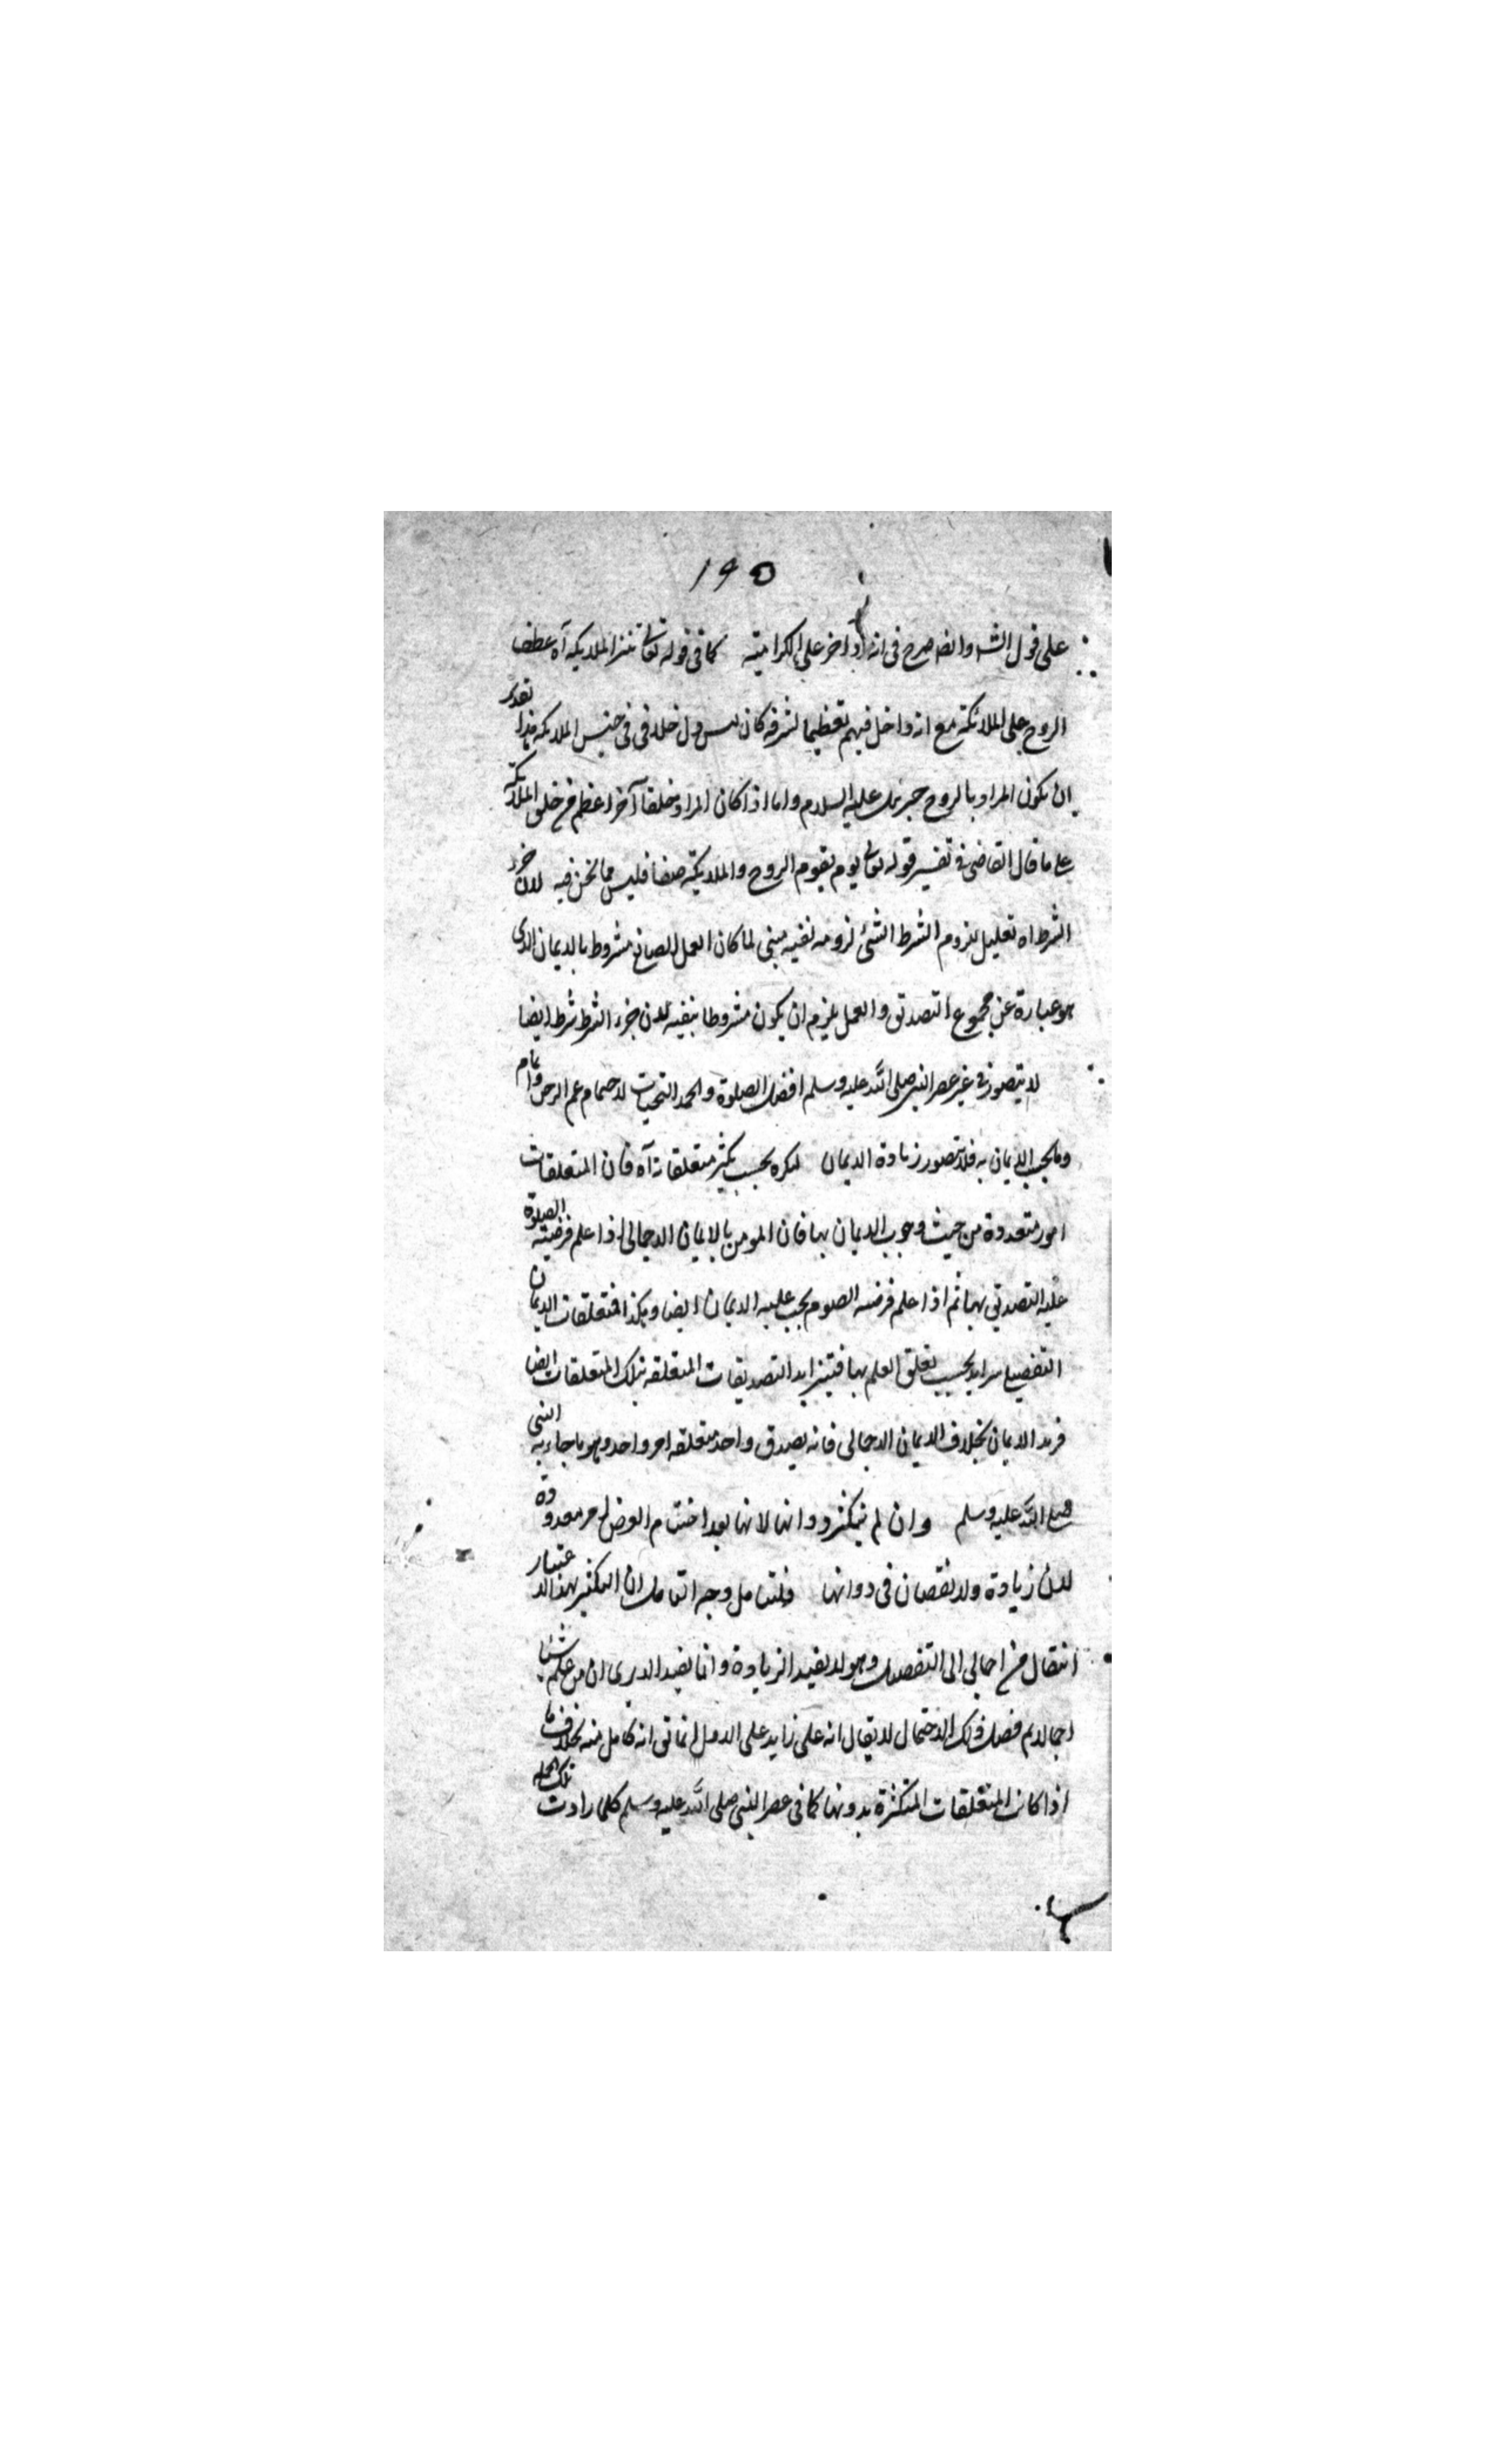 ١٩٥
على قول الشه وايضا صرح في انه اذا اخر على الكرامية كما في قوله تعالى تنزل الملايكه آه عطف
الروح على الملائكة مع انه داخل فيهم تعظيما لشرفه كان ليس داخلا في جنس الملايكه هذا تقدير
ان يكون المراد بالروح جبرئيل عليه السلام واما اذا كان المراد خلقا آخر اعظم من خلق الملائكة
على ما قال القاضي في تفسير قوله تعالى يوم يقوم الروح والملايكة صفا فليس مما نحن فيه لان جزء
الشرط اه تعليل بلزوم الشرط الشئ لزومه لنفسه يعني لما كان العمل الصالح مشروطا بالايمان الذي
هو عبارة عن مجموع التصديق والعمل يلزم ان يكون مشروطا بنفسه لان جزء الشرط شرط ايضا
لا يتصور في غير عصر النبي صلى الله عليه وسلم افضل الصلوة والحمد التحيات لاختتام
وما يجب الايمان به فلا يتصور زيادة الايمان بحسب تكثر متعلقاته آه فان المتعلقات
امور متعددة من حيث وجوب الايمان بها فان المومن بالايمان الاجمالي اذا علم فرضية الصلوة
عليه التصديق بها ثم اذا علم فرضية الصوم يجب عليه الايمان ايضا وهكذا فمتعلقات الايمان
التفصيلي يتزايد بحسب تعلق العلم بها فيتزايد التصديقات المتعلقه بتلك المتعلقات ايضا
فيزيد الايمان بخلاف الايمان الاجمالي فانه تصديق واحد متعلقه امر واحد وهو ما جاء به النبي
صلى الله عليه وسلم وان لم يتكثر ذواتها لانها بعد اختتام معدودة
لا زيادة ولا نقصان في ذواتها فليتامل وجه التامل ان التكثير بهذا الاعتبار
انتقال من اجمالي الى التفصيل وهو لا يفيد الزيادة وانما يفيد ان من علم شيئا
اجمالا ثم فصل ذلك الاحتمال لا يقال انه على زايد على الاول انه كامل منه بخلاف ما
اذا كانت المتعلقات المتكثرة بذواتها كما في عصر النبي صلى الله عليه وسلم كلما زادت تلك الجملة